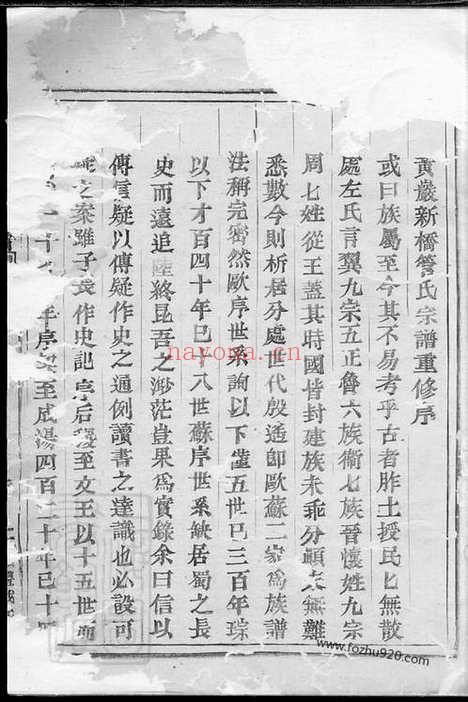 黃巖新橋管氏宗譜重修序
或曰族屬至今其不易考乎古者胙土授民民無散
處左氏言翼九宗五正魯六族衞七族晉懷姓九宗
周七姓從王蓋其時國皆封建族未乖分頔支無難
悉數今則析居分處世代殷遙卽歐蘇二家爲族譜
法稱完密然歐序世系詢以下僅五世已三百年琮
以下才百四十年已十八世蘇序世系缺居蜀之長
史而遠追陸終昆吾之渺茫豈果爲實錄余曰信以
傳信疑以傳疑作史之通例讀書之達識也必設可
之案雖子長作史記序后稷至文王以十五世而
年序契至成湯四百二十年已十
nayona.cn
www.fozhu920.com